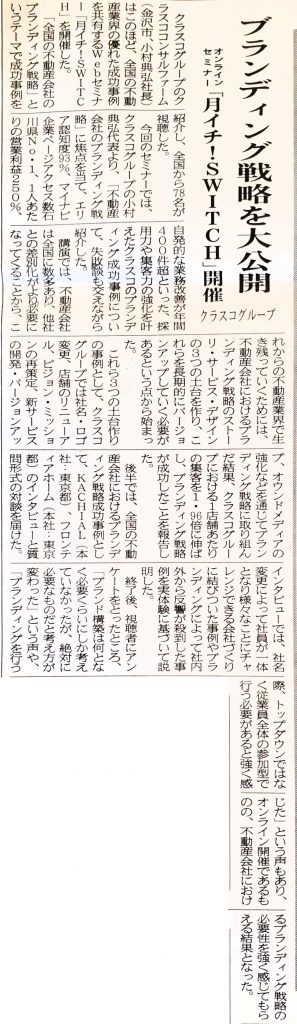 ブランディング戦略を大公開
オンライン
セミナー
「月イチ!・SWITCH」開催
クラスコグループ
クラスコグループのク
ラスココンサルファーム
(金沢市、小村典弘社長)
はこのほど、全国の不動
産業界の優れた成功事例
を共有するWebセミナ
ー「月イチ!SWITC
H」を開催した。
「全国の不動産会社の
ブランディング戦略」と
いうテーマで成功事例を
紹介し、全国から78名が
視聴した。
今回のセミナーでは、
クラスコグループの小村
典弘代表より、「不動産
会社のブランディング戦
略」に焦点を当て、エリ
ア認知度93%、マイナビ
企業ページアクセス数石
川県No・1、1人あた
りの営業利益250%、
自発的な業務改善が年間
400件超といった、採
用力や集客力の強化を叶
えたクラスコのブランデ
ィング成功事例につい
て、失敗談も交えながら
紹介した。
講演では、不動産会社
は全国に数多あり、他社
との差別化がより必要に
なってくることから、こ
れからの不動産業界で生
き残っていくためには、
不動産会社におけるブラ
ンディング戦略のストー
リ・サービス・デザイン
の3つの土台を作り、こ
れらを長期的にバージョ
ンアップしていく必要が
あるという点から始まっ
た。
これら3つの土台作り
の事例として、クラスコ
グループでは社名・ロゴ
変更、店舗のリニューア
ル、ビジョン・ミッショ
ンの再策定、新サービス
の開発・バージョンアッ
プ、オウンドメディアの
強化などを通じてブラン
ディング戦略に取り組ん
だ結果、クラスコグルー
プにおける1店舗あたり
の集客を1・96倍に伸ば
し、ブランディング戦略
が成功したことを報告し
た。
後半では、全国の不動
産会社におけるブランデ
ィング戦略成功事例とし
て、KACHIAL(本
社:東京都)、フロンテ
ィアホーム(本社:東京
都)のインタビューと質
問形式の対談を届けた。
インタビューでは、社名
変更によって社員が一体
となり様々なことにチャ
レンジできる会社づくり
に結びついた事例やブラ
ンディングによって社内
外から反響が殺到した事
例を実体験に基づいて説
明した。
終了後、視聴者にアン
ケートをとったところ、
「ブランド構築は何とな
く必要くらいにしか考え
ていなかったが、絶対に
必要なものだと考え方が
変わった」という声や、
「ブランディングを行う
際、トップダウンではな
く従業員全体の参加型で
行う必要があると強く感
じた」という声もあり、
オンライン開催であるも
のの、不動産会社におけ
るブランディング戦略の
必要性を強く感じてもら
える結果となった。